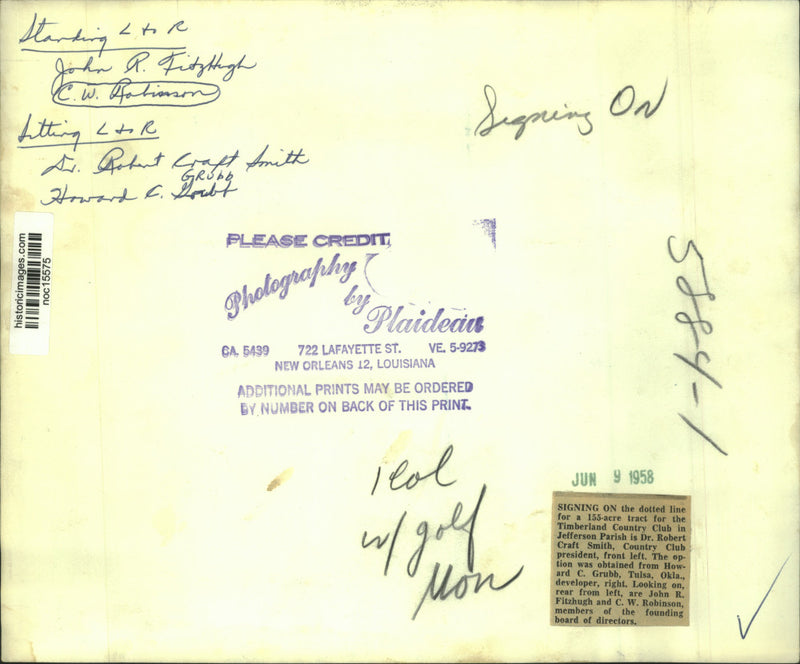 Standing L to R
John R. FitzHugh
C. W. Robinson
Sitting L to R
Dr. Robert Craft Smith
GRUBB
Howard C. Grubt
Signing ON
historicimages.com
noc15575
PLEASE CREDIT
Photography
by
Plaideau
CA. 5439 722 LAFAYETTE ST. VE. 5-9273
NEW ORLEANS 12, LOUISIANA
ADDITIONAL PRINTS MAY BE ORDERED
BY NUMBER ON BACK OF THIS PRINT.
5884-1
1 Col
w/ golf
Mon
JUN 9 1958
SIGNING ON the dotted line
for a 155-acre tract for the
Timberland Country Club in
Jefferson Parish is Dr. Robert
Craft Smith, Country Club
president, front left. The op-
tion was obtained from How-
ard C. Grubb, Tulsa, Okla.,
developer, right. Looking on,
rear from left, are John R.
Fitzhugh and C. W. Robinson,
members of the founding
board of directors.